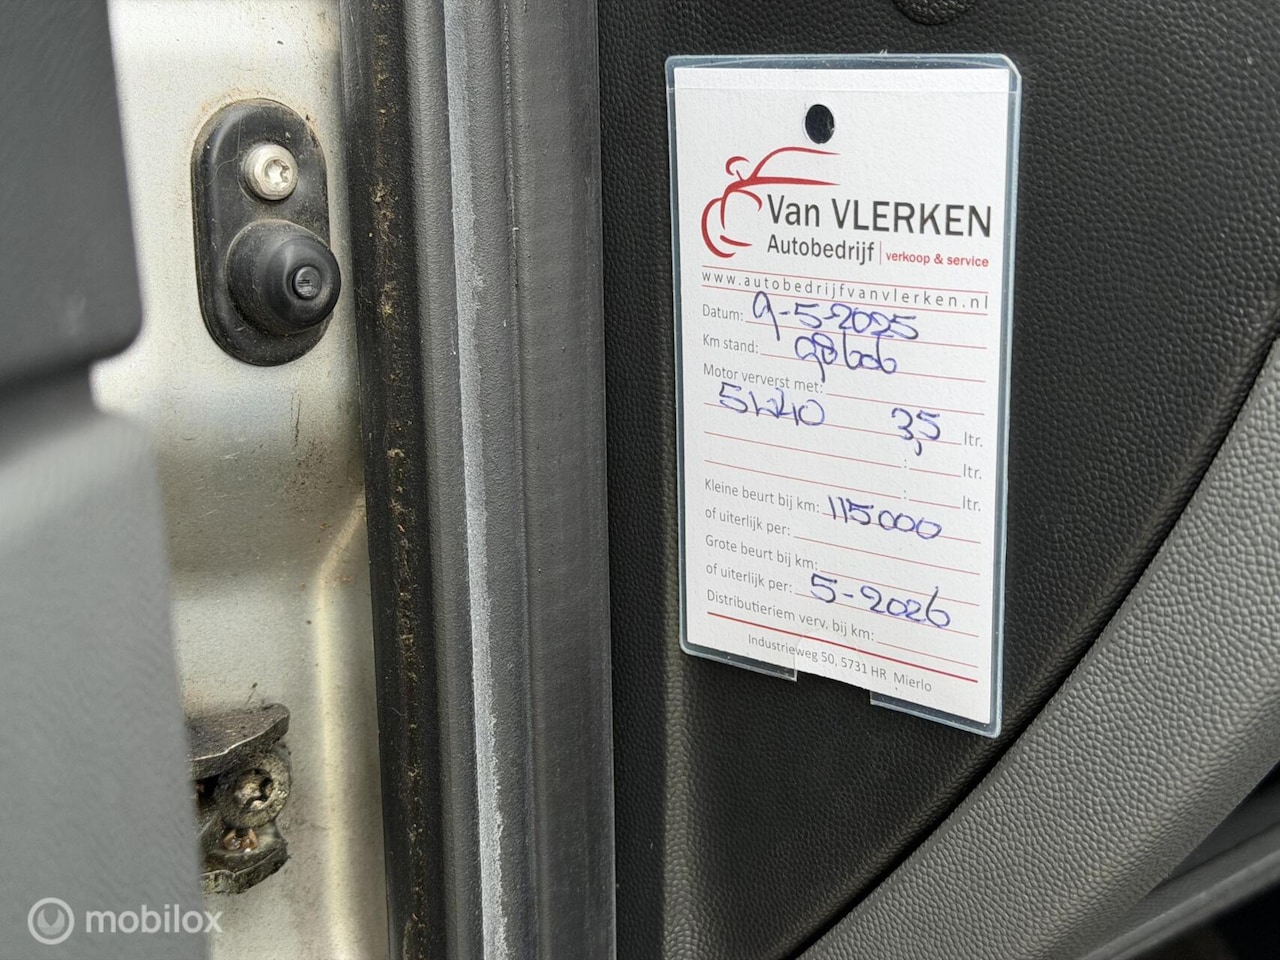 Van VLERKEN
Autobedrijf | verkoop & service
www.autobedrijfvanvlerken.nl
Datum: 9-5-2025
Km stand: 98606
Motor ververst met:
5W40 3,5 ltr.
: ltr.
: ltr.
Kleine beurt bij km: 115000
of uiterlijk per:
Grote beurt bij km:
of uiterlijk per: 5-2026
Distributieriem verv. bij km:
Industrieweg 50, 5731 HR Mierlo
mobilox